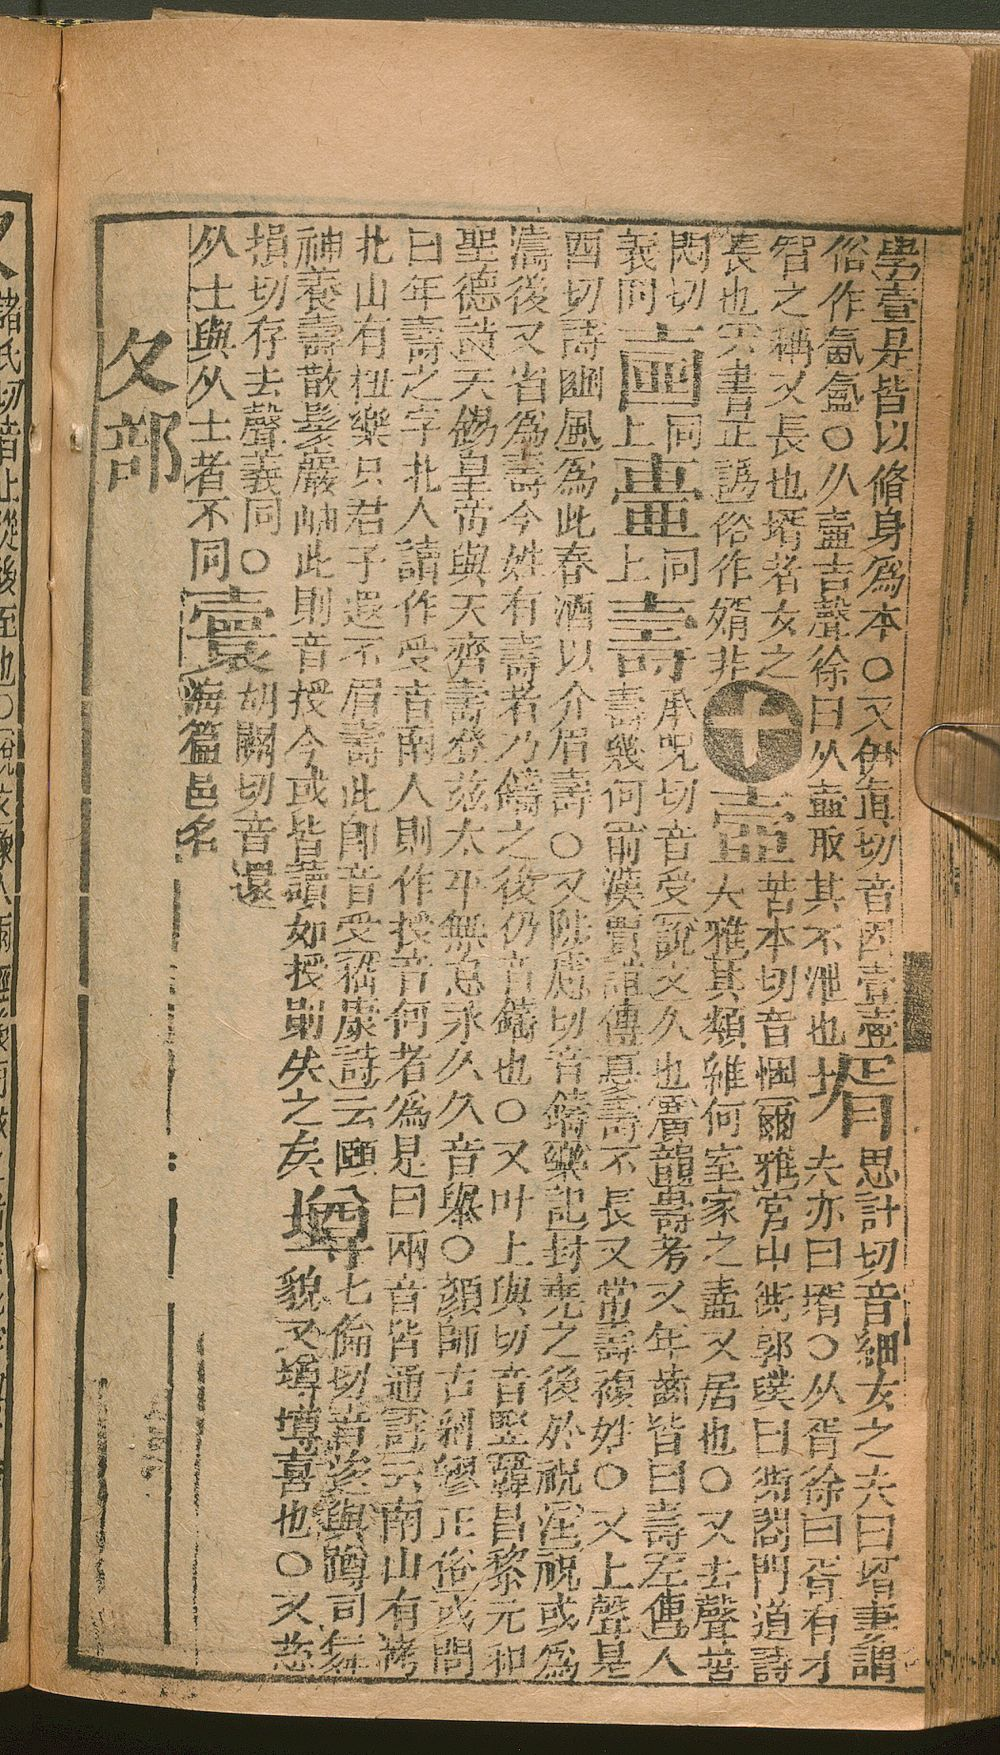 學壹是皆以脩身爲本○又伊眞切音因壹壺壻思計切音細女之夫曰壻妻謂
俗作氤氳○从壺吉聲徐曰从壺取其不泄也夫亦曰壻○从胥徐曰胥有才
智之稱又長也壻者女之
長也六書正譌俗作婿非十壼苦本切音悃爾雅宮中衖郭璞曰衖閤門道詩
大雅其類維何室家之壼又居也○又去聲苦
悶切
義同壼同上壼同上壽承呪切音受說文久也廣韻壽考又年齒皆曰壽左傳人
壽幾何前漢賈誼傳憂壽不長又常壽複姓○又上聲是
酉切詩豳風爲此春酒以介眉壽○又陟慮切音鑄樂記封堯之後於祝注祝或爲
濤後又省爲壽今姓有壽者乃鑄之後仍音鑄也○又叶上與切音竪韓昌黎元和
聖德詩天錫皇帝與天齊壽登茲太平無怠永久久音舉○顏師古糾繆正俗或問
曰年壽之字北人讀作受音南人則作授音何者爲是曰兩音皆通詩云南山有栲
北山有杻樂只君子遐不眉壽此卽音受嵇康詩云頤
神養壽散髮嚴岫此則音授今或皆讀如授則失之矣墫七倫切音逡與蹲同舞
貌又墫墫喜也○又慈
損切存去聲義同○
从士與从土者不同寰胡關切音還
海篇邑名
夂部
夂諸氏切音止從後至也○說文像人兩脛